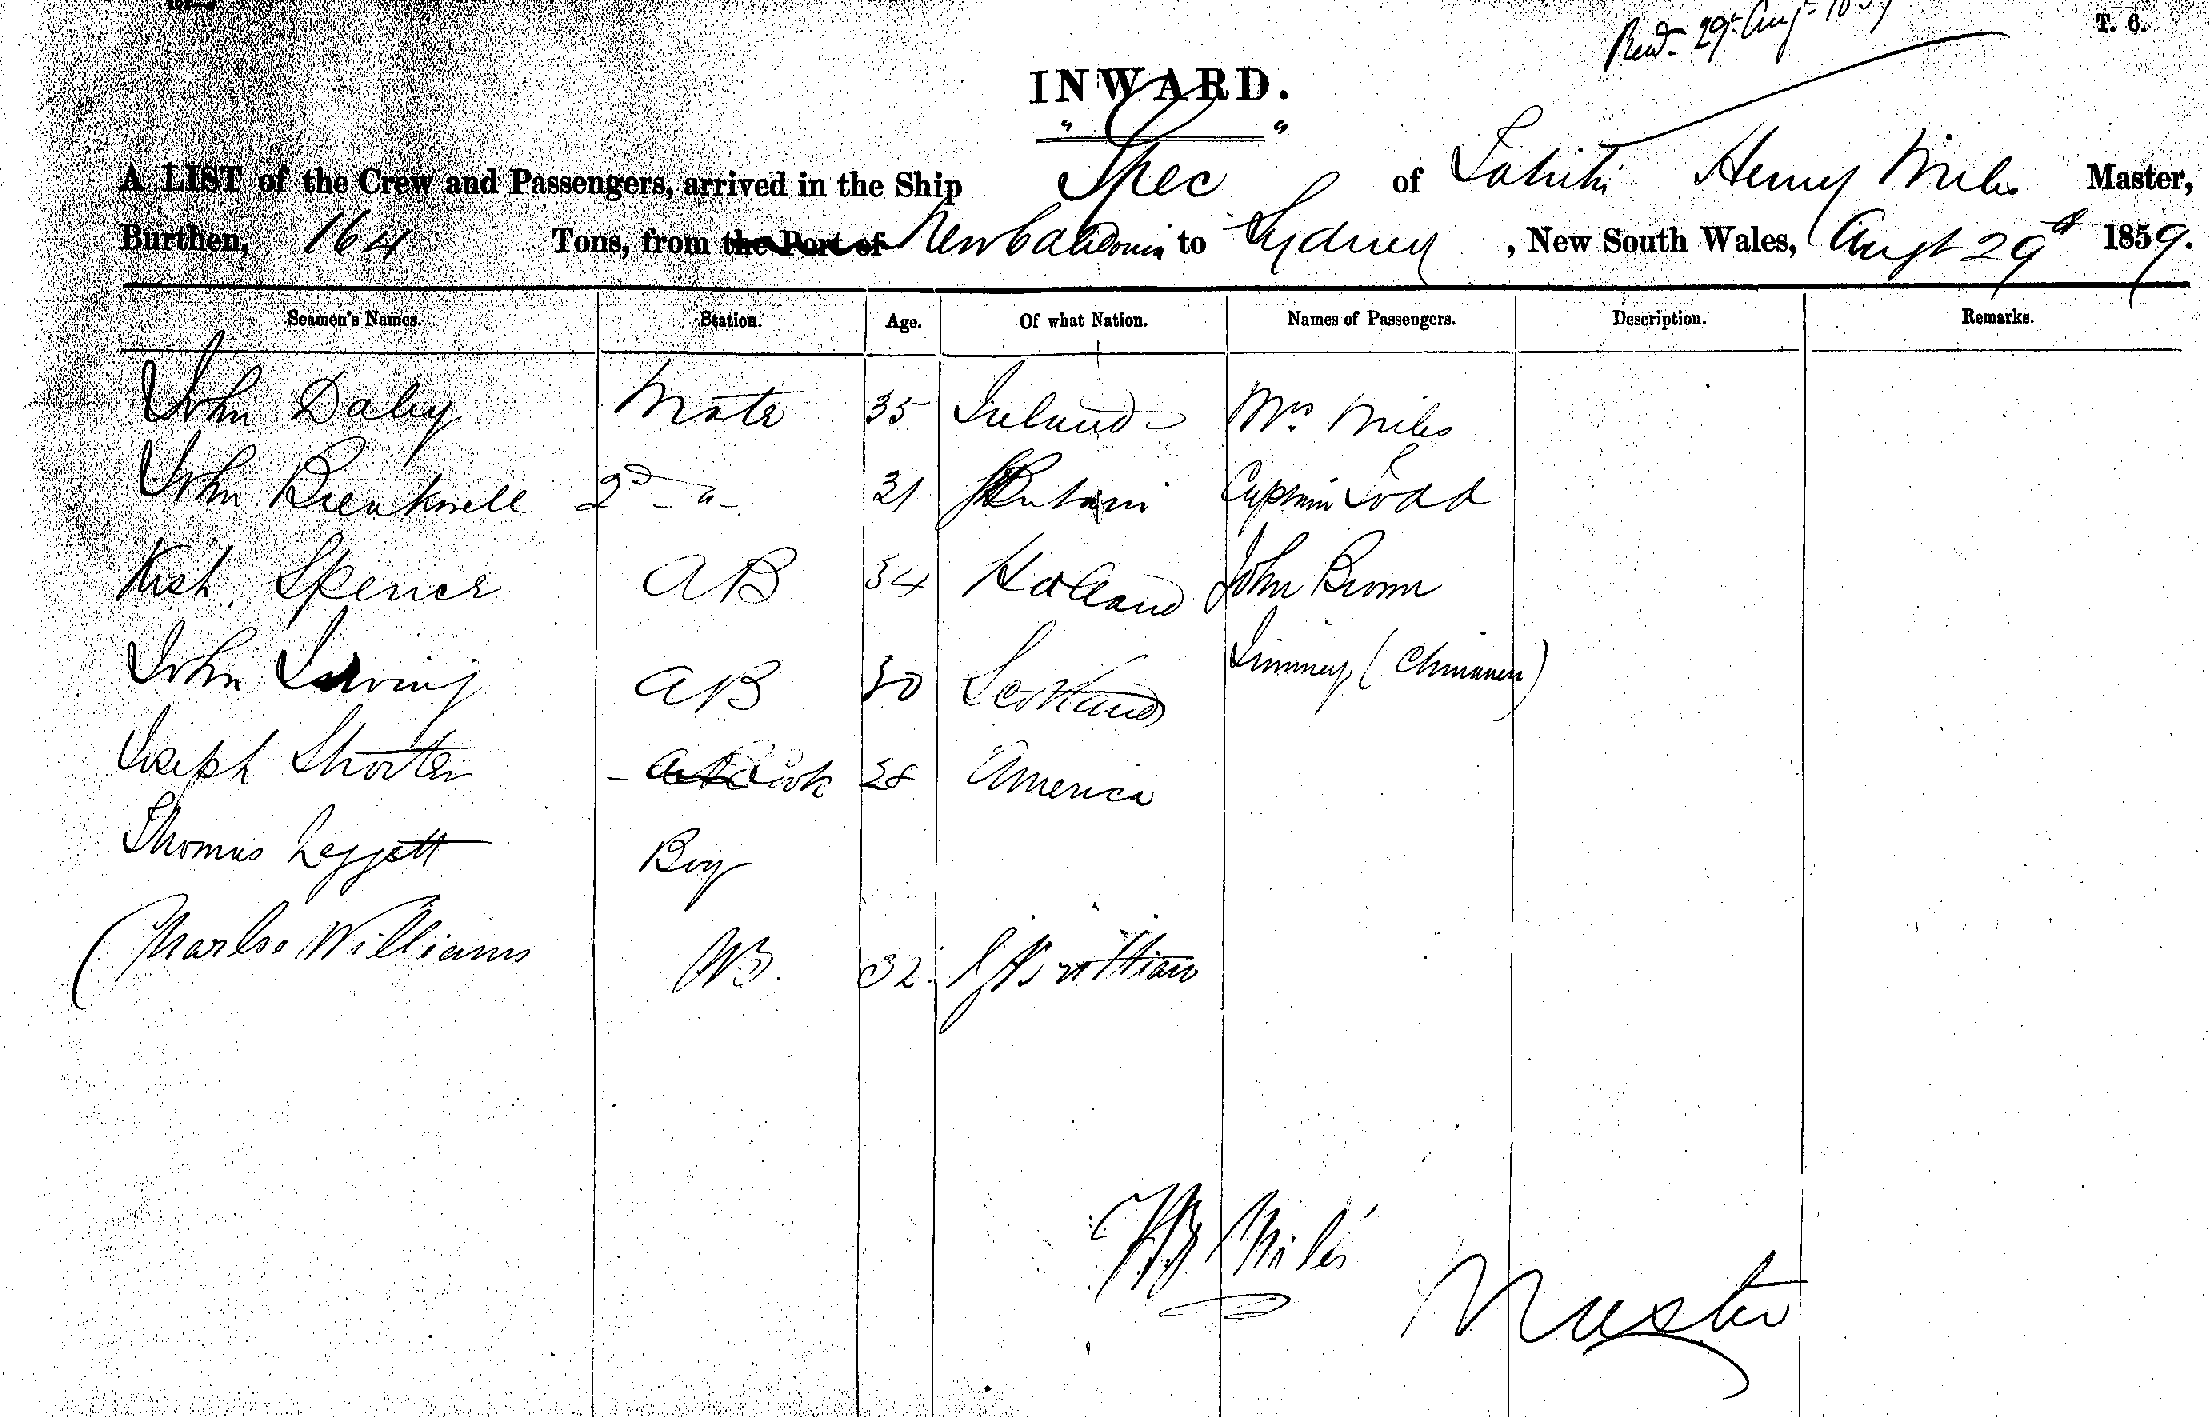 Recd. 29th Aug. 1859
T. 6.
INWARD.
A LIST of the Crew and Passengers, arrived in the Ship Spec of Tahiti Henry Miles Master,
Burthen, 164 Tons, from the Port of New Caledonia to Sydney, New South Wales, Augt 29th 1859.
Seamen's Names. Station. Age. Of what Nation. Names of Passengers. Description. Remarks.
John Daley Mate 35 Ireland Mrs. Miles
John Breaknell 2nd " 31 Britain Captain Todd
Rich. Spencer AB 34 Holland John Brown
John Irving AB 30 Scotland Jimmey (Chinamen)
Joseph Shorter Cook 28 America
Thomas Leggett Boy
Williams AB. 32
HB Miles
Master